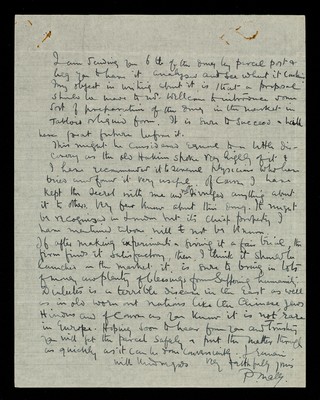 I am sending you 6 lb of the drug by parcel post &
beg you to have it analyzed and see what it contains
My object in writing about it is that a proposal
should be made to Mr Wellcome to introduce some
sort of preparation of the drug in the market in
Tabloid or liquid form. It is sure to succeed & will
have great future before it.
This might be considered equal to a little dis-
covery as the old Hakim spoke very highly of it &
I have recommended it to several physicians who have
tried and found it very useful. Of course I have
kept the secret with me and not divulged anything about
it to them. Very few know about this drug. It might
be recognised in London but its chief property, I
have mentioned above will not be known.
If after making experiments & giving it a fair trial, the
firm finds it satisfactory, then I think it should be
launched in the market. it is sure to bring in lots
of money and plenty of blessings from suffering humanity.
Diabetes is a terrible disease in the East as well
as in old worn out nations like the Chinese Jews
Hindus and of course as you know it is not rare
in Europe. Hoping soon to hear from you and trusting
you will get the parcel safely & put the matter through
as quickly as it can be done conveniently. I remain
with kind regards Very faithfully yours